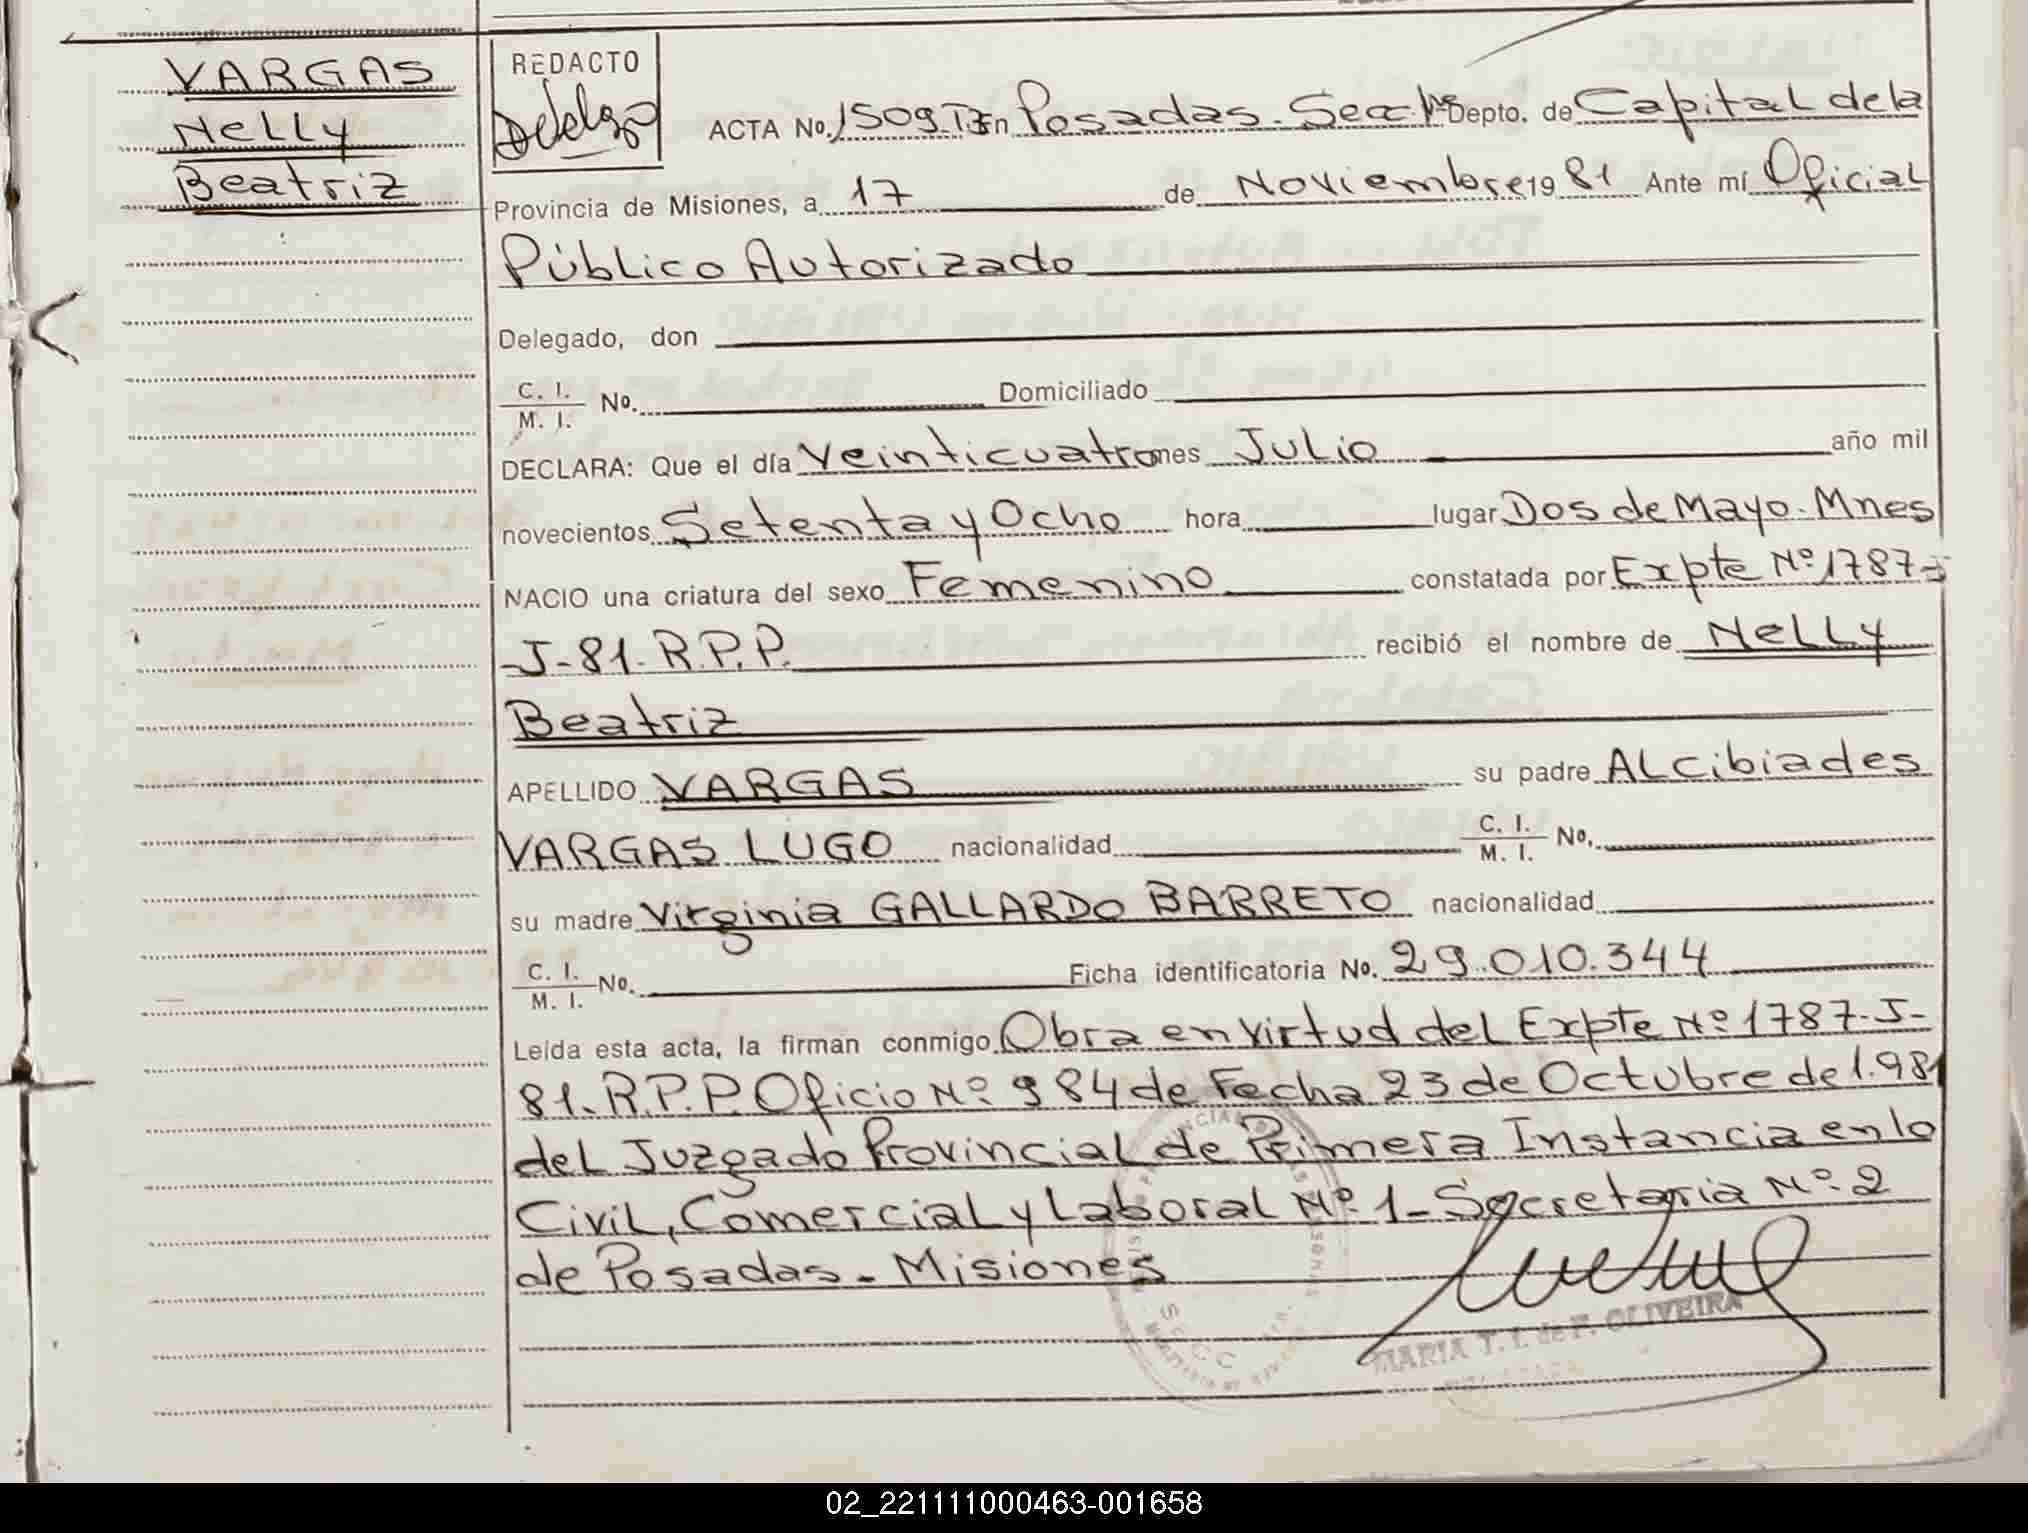 VARGAS
Nelly
Beatriz
REDACTO
ACTA No. 1509 En Posadas. Secc 1ª Depto. de Capital de la
Provincia de Misiones, a 17 de Noviembre 19 81 Ante mí Oficial
Público Autorizado
Delegado, don
C. I.
M. I. No. Domiciliado
DECLARA: Que el día Veinticuatro mes Julio año mil
novecientos Setenta y Ocho hora lugar Dos de Mayo. Mnes
NACIO una criatura del sexo Femenino constatada por Expte Nº 1787-
J-81. R.P.P. recibió el nombre de Nelly
Beatriz
APELLIDO VARGAS su padre ALcibiades
VARGAS LUGO nacionalidad C. I.
M. I. No.
su madre Virginia GALLARDO BARRETO nacionalidad
C. I.
M. I. No. Ficha identificatoria No. 29.010.344
Leída esta acta, la firman conmigo Obra en virtud del Expte Nº 1787-J-
81. R.P.P. Oficio Nº 984 de Fecha 23 de Octubre de 1.981
del Juzgado Provincial de Primera Instancia en lo
Civil, Comercial y Laboral Nº 1- Secretaria Nº 2
de Posadas- Misiones
MARIA T. I. de F. OLIVEIRA
02_221111000463-001658